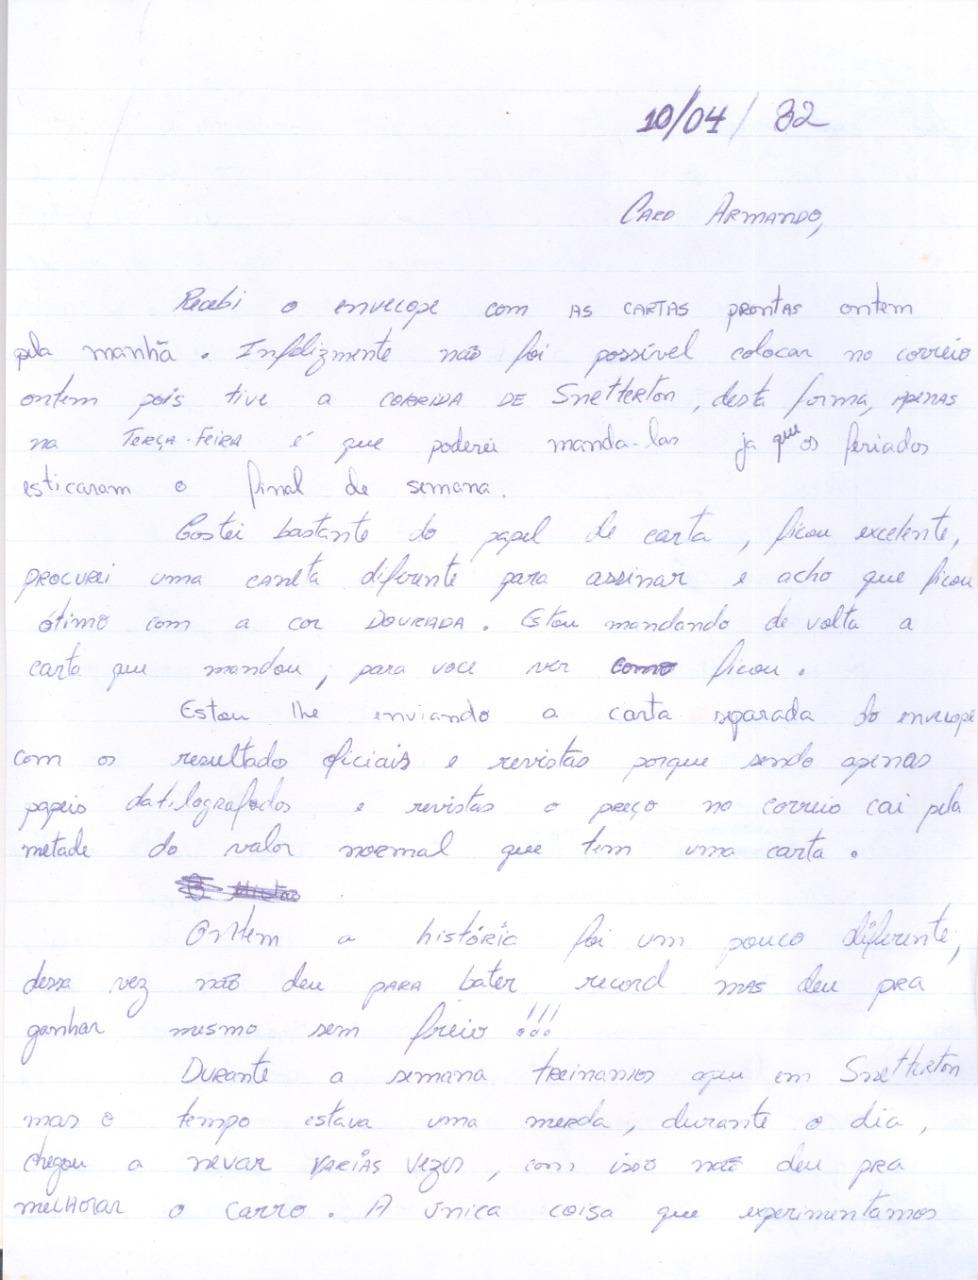 10/04/82
Caro Armando,
Recebi o envelope com as cartas prontas ontem
pela manhã. Infelizmente não foi possível colocar no correio
ontem pois tive a corrida de Snetterton, desta forma, apenas
na Terça-Feira é que poderei manda-las ja que os feriados
esticaram o final de semana.
Gostei bastante do papel de carta, ficou excelente,
procurei uma caneta diferente para assinar e acho que ficou
ótimo com a cor dourada. Estou mandando de volta a
carta que mandou, para voce ver como ficou.
Estou lhe enviando a carta separada do envelope
com os resultados oficiais e revistas porque sendo apenas
papeis datilografados e revistas o preço no correio cai pela
metade do valor normal que tem uma carta.
Ontem a história foi um pouco diferente,
dessa vez não deu para bater record mas deu pra
ganhar mesmo sem freio!!!
Durante a semana treinamos aqui em Snetterton
mas o tempo estava uma merda, durante o dia,
chegou a nevar varias vezes, com isso não deu pra
melhorar o carro. A única coisa que experimentamos